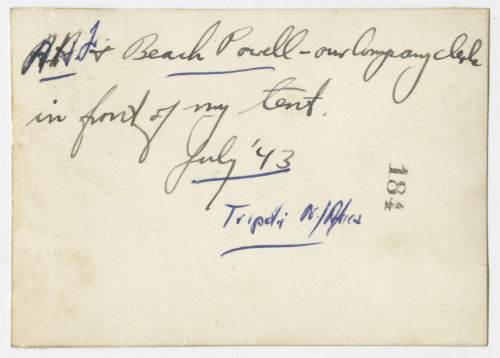 Beach Powell - our Company clerk
in front of my tent.
July '43
184
Tripoli N/Africa